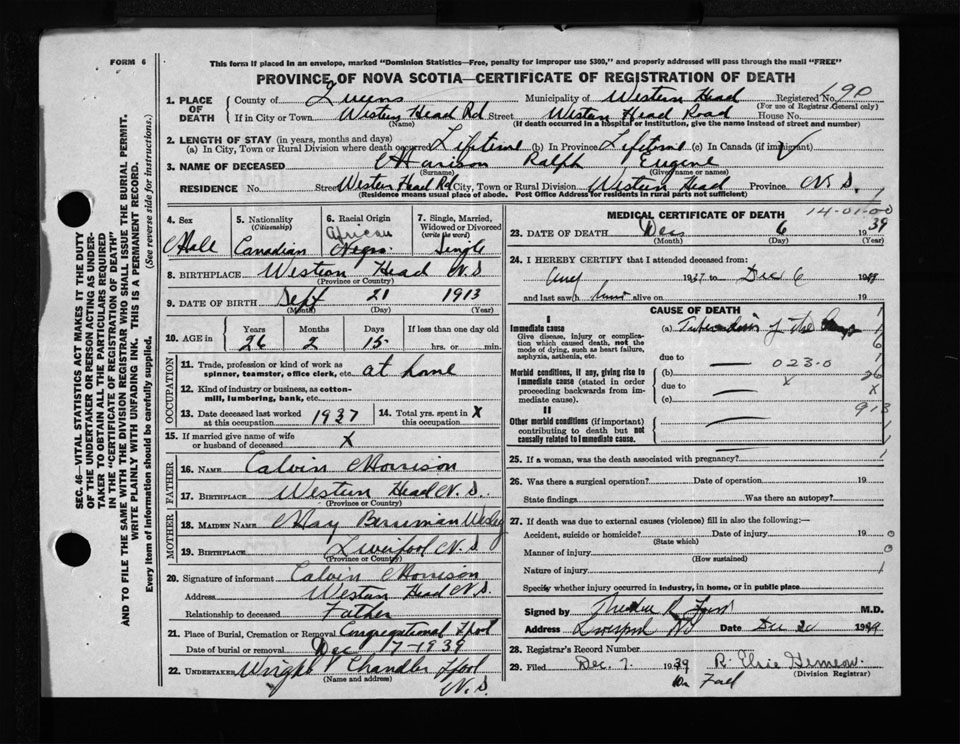 FORM 6
This form if placed in an envelope, marked "Dominion Statistics—Free, penalty for improper use $300," and properly addressed will pass through the mail "FREE"
PROVINCE OF NOVA SCOTIA—CERTIFICATE OF REGISTRATION OF DEATH
SEC. 46—VITAL STATISTICS ACT MAKES IT THE DUTY
OF THE UNDERTAKER OR PERSON ACTING AS UNDER-
TAKER TO OBTAIN ALL THE PARTICULARS REQUIRED
IN THE "CERTIFICATE OF REGISTRATION OF DEATH"
AND TO FILE THE SAME WITH THE DIVISION REGISTRAR WHO SHALL ISSUE THE BURIAL PERMIT.
WRITE PLAINLY WITH UNFADING INK. THIS IS A PERMANENT RECORD.
Every item of information should be carefully supplied. (See reverse side for instructions.)
1. PLACE OF DEATH County of Queens Municipality of Western Head Registered No. 690
(For use of Registrar-General only)
If in City or Town Western Head Rd Street Western Head Road House No.
(Name) (If death occurred in a hospital or institution, give the name instead of street and number)
2. LENGTH OF STAY (in years, months and days)
(a) In City, Town or Rural Division where death occurred Lifetime (b) In Province Lifetime (c) In Canada (if immigrant)
3. NAME OF DECEASED Ralph Eugene
(Surname) (Given name or names)
RESIDENCE No. Street Western Head Rd City, Town or Rural Division Western Head Province N.S.
(Residence means usual place of abode. Post Office Address for residents in rural parts not sufficient)
4. Sex Male
5. Nationality (Citizenship) Canadian
6. Racial Origin African Negro
7. Single, Married, Widowed or Divorced (write the word) Single
8. BIRTHPLACE Western Head N.S
(Province or Country)
9. DATE OF BIRTH Sept 21 1913
(Month) (Day) (Year)
10. AGE in Years 26 Months 2 Days 15 If less than one day old hrs. or min.
OCCUPATION
11. Trade, profession or kind of work as spinner, teamster, office clerk, etc. at home
12. Kind of industry or business, as cotton-mill, lumbering, bank, etc.
13. Date deceased last worked at this occupation 1937
14. Total yrs. spent in this occupation X
15. If married give name of wife or husband of deceased X
FATHER
16. NAME Calvin Morrison
17. BIRTHPLACE Western Head N.S.
MOTHER
18. MAIDEN NAME May Wesley
19. BIRTHPLACE Liverpool N.S.
(Province or Country)
20. Signature of informant Calvin Morrison
Address Western Head N.S.
Relationship to deceased Father
21. Place of Burial, Cremation or Removal Congregational Lpool
Date of burial or removal Dec 17-1939
22. UNDERTAKER Wright Chandler Lpool
(Name and address) N.S.
MEDICAL CERTIFICATE OF DEATH
14-01-00
23. DATE OF DEATH Dec 6 1939
(Month) (Day) (Year)
24. I HEREBY CERTIFY that I attended deceased from:
Aug 1937 to Dec 6 19
and last saw h alive on 19
CAUSE OF DEATH
I
Immediate cause
Give disease, injury or complication which caused death, not the mode of dying, such as heart failure, asphyxia, asthenia, etc.
(a) Tuberculosis of the
due to
Morbid conditions, if any, giving rise to immediate cause (stated in order proceeding backwards from immediate cause).
(b) 023-0
due to X
(c)
26
X
913
II
Other morbid conditions (if important) contributing to death but not causally related to immediate cause.
25. If a woman, was the death associated with pregnancy?
26. Was there a surgical operation? Date of operation 19
State findings Was there an autopsy?
27. If death was due to external causes (violence) fill in also the following:—
Accident, suicide or homicide? Date of injury 19
(State which)
Manner of injury
(How sustained)
Nature of injury
Specify whether injury occurred in industry, in home, or in public place
Signed by M.D.
Address Liverpool NS Date Dec 20 19
28. Registrar's Record Number
29. Filed Dec. 7. 1939 R. Elsie
(Division Registrar)